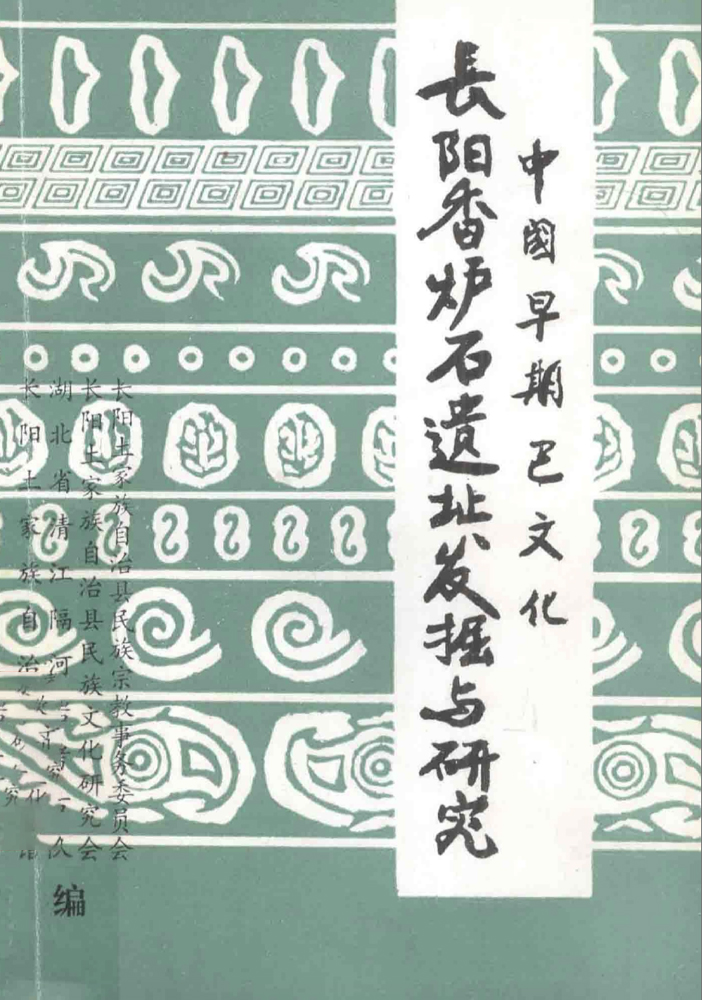 中國早期巴文化
長阳香炉石遗址发掘与研究
长阳土家族自治县民族宗教事务委员会
长阳土家族自治县民族文化研究会
湖北省清江隔河
长阳土家族自治
编